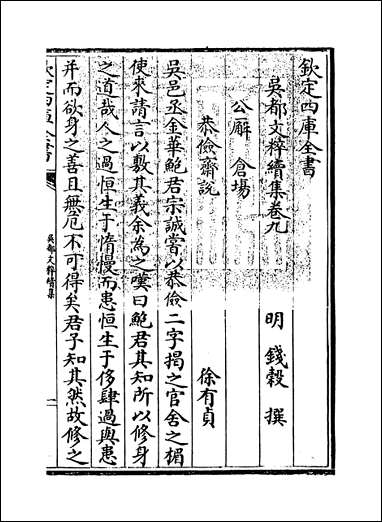 欽定四庫全書
吳都文粹續集卷九
明 錢穀 撰
公廨 倉場
恭儉齋說 徐有貞
吳邑丞金華鮑君宗誠嘗以恭儉二字揭之官舍之楣
使來請言以敷其義余為之嘆曰鮑君其知所以修身
之道哉人之過恒生于惰慢而患恒生于侈肆過與患
并而欲身之善且無厄不可得矣君子知其然故修之
欽定四庫全書
吳都文粹續集
一